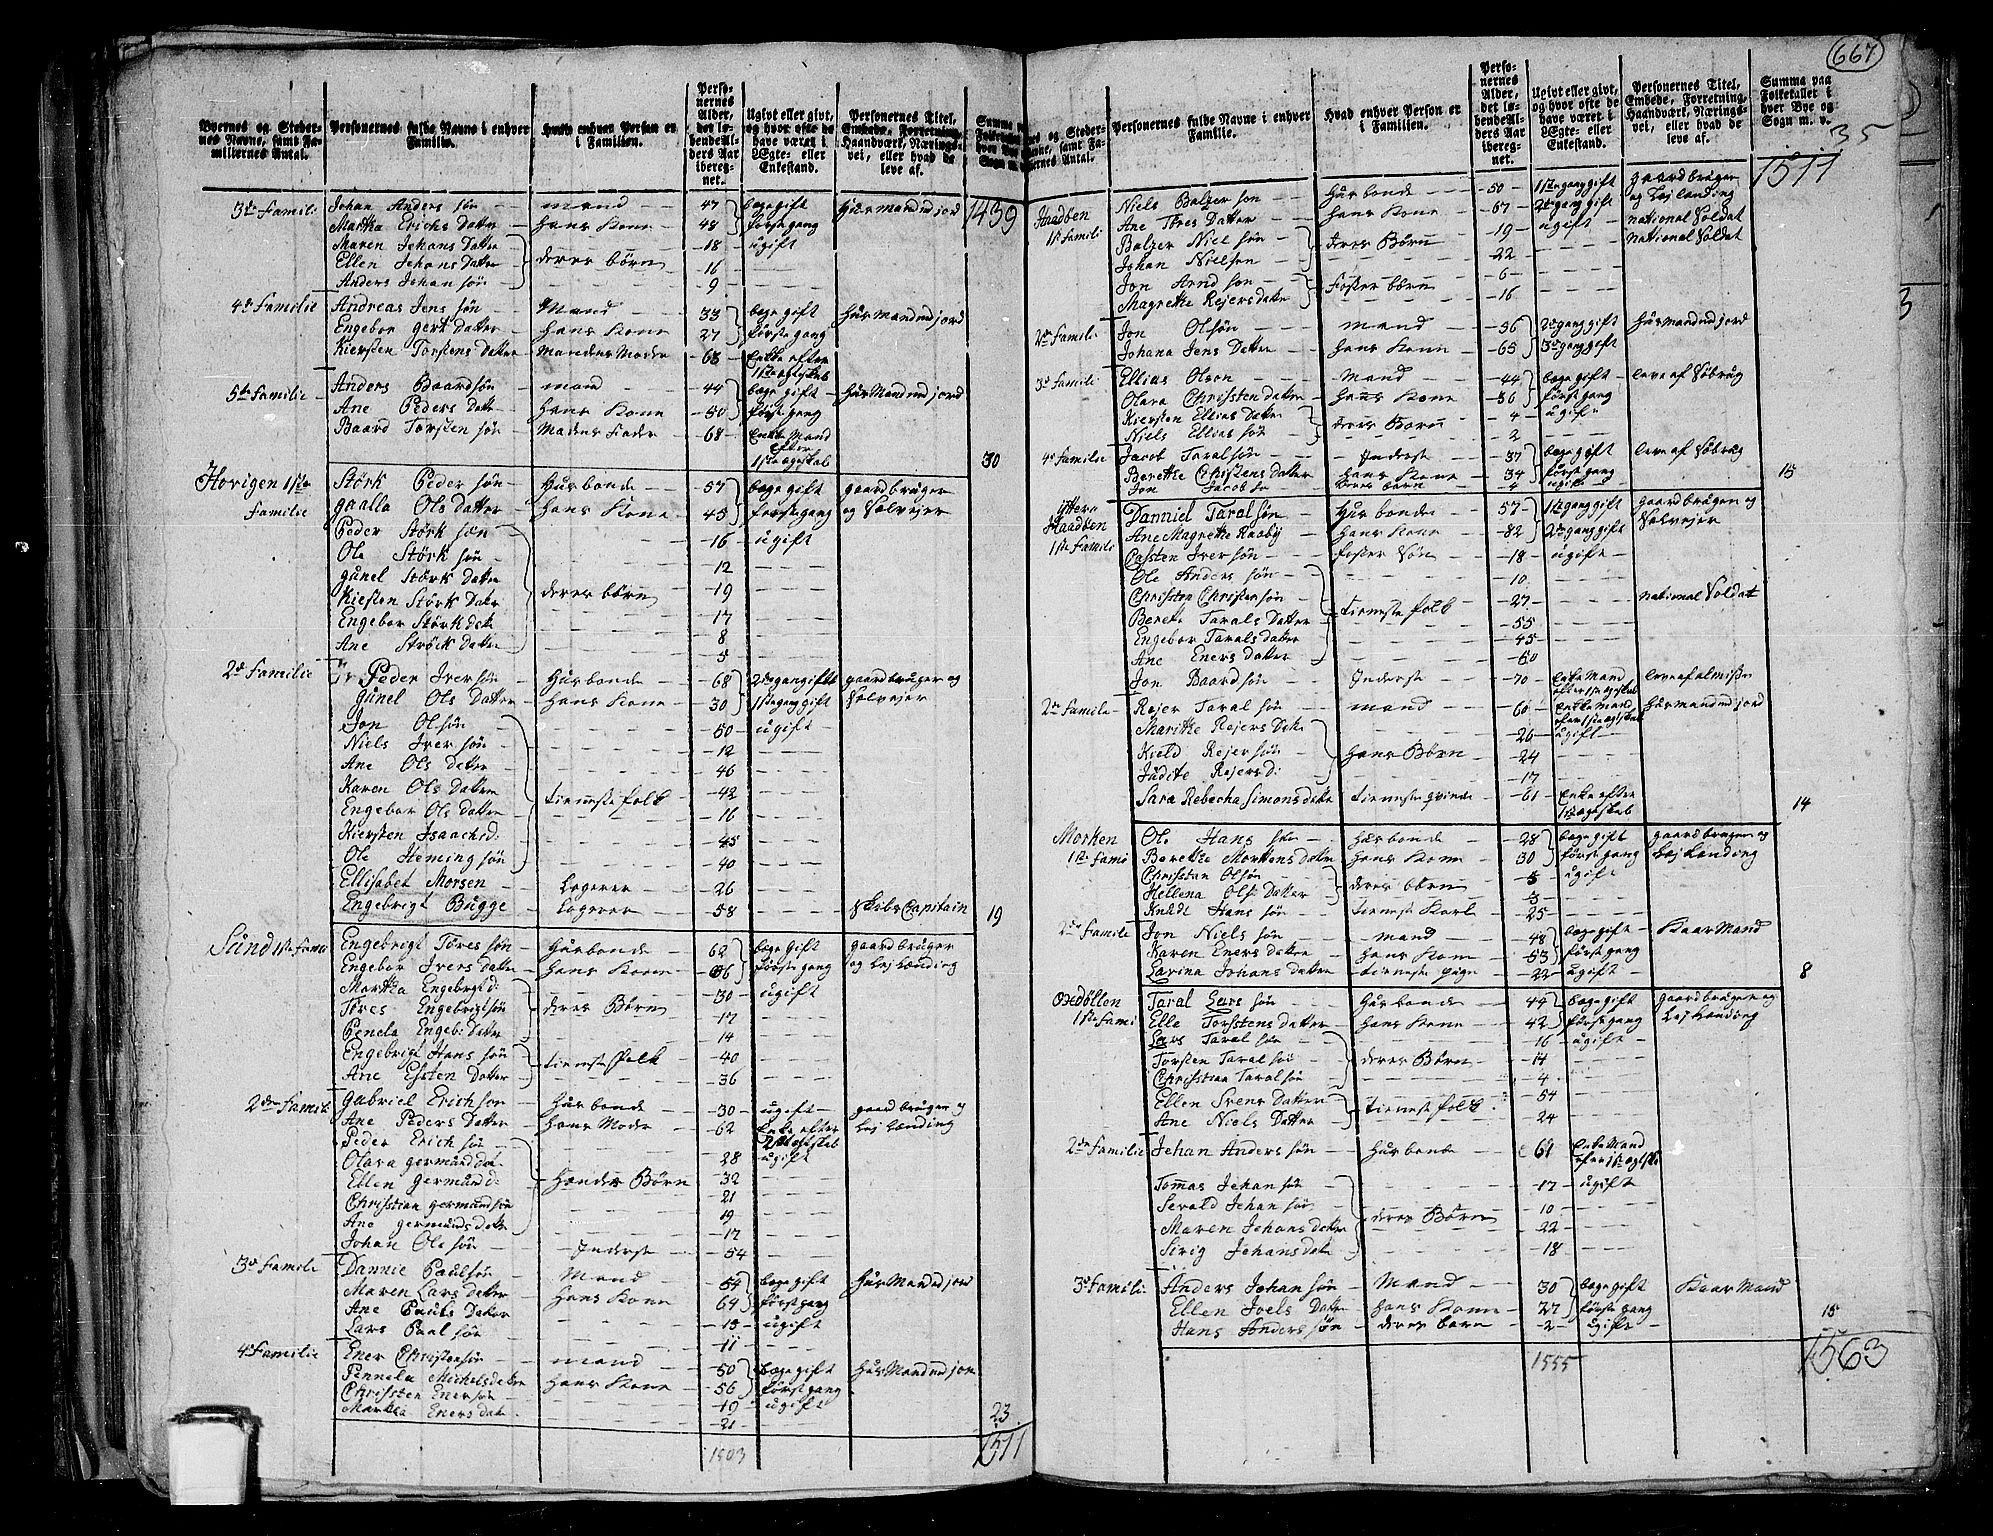 667
35
Byernes og Stedernes Navne, samt Familiernes Antal. | Personernes fulde Navne i enhver Familie. | Hvad enhver Person er i Familien. | Personernes Alder, det løbende Alders Aar iberegnet. | Ugivt eller givt, og hvor ofte de have været i Ægte- eller Enkestand. | Personernes Titel, Embede, Forretning, Haandværk, Næringsvei, eller hvad de leve af.
1439
3de Famili | Johan Anders søn | mand | 47 | bege gift | Huusmand md jord
Martha Erichs Datter | hans Kone | 48 | første gang
Maren Johans Datter | deres børn | 18 | ugift
Ellen Johans Datter | 16
Anders Johan søn | 9
4de Familie | Andreas Jens søn | Mand | 33 | bege gift | Huusmand md jord
Engebor Gert Datter | hans Kone | 27 | første gang
Kiersten Torstens Datter | Mandens Moder | 68 | Enke efter 1ste ægteskab
5te Familie | Anders Baardsøn | mand | 44 | bege gift | Huus Mand md jord
Ane Peders Datter | hans Kone | 50 | første gang
Baard Torsten søn | Mandens Fader | 68 | Enke Mand efter 1ste ægteskab | 30
Hovigen 1ste Familie | Størk Peder søn | Husbonde | 57 | bege gift | gaardbruger
Gaalla Ols Datter | hans Kone | 45 | første gang | og Selvejer
Peder Størk søn | 16 | ugift
Ole Størk søn | 12
Gunel Størk Datter | deres børn | 19
Kiersten Størk Datter | 17
Engebor Størk dater | 8
Ane Størck Datter | 5
2de Familie | Peder Iver søn | Husbonde | 68 | 2de gang gift | gaardbruger og
Gunel Ols Datter | hans Kone | 30 | 1ste gang gift | Selvejer
Jon Olsøn | 50 | ugift
Niels Iver søn | 12
Ane Ols datter | 46
Karen Ols Datter | tienneste folk | 42
Engebor Ols datter | 16
Kiersten Isaachsd: | 45
Ole Heming søn | 40
Ellisabet Morsen | Logerer | 26
Engebrigt Bugge | Logerer | 58 | Skibs Capitain | 19
Sund 1ste Famil | Engebrigt Tøres søn | Husbonde | 62 | bege gift | gaardbruger
Engebor Ivers datter | hans Kone | 66 | første gang | og Lejlænding
Martha Engebrigtd: | 30 | ugift
Tøres Engebrigtsøn | deres Børn | 17
Penela Engeb: Datter | 14
Engebrigt Hans søn | tienneste folk | 40
Ane Esten Datter | 36
2den Famili | Gabriel Erichsen | Husbonde | 30 | ugift | gaardbruger og
Ane Peders Datter | hans Moder | 62 | Enke efter 2det ægteskab | Lejlænding
Peder Erich søn | 28 | ugift
Olava Germund datter | 32
Ellen Germund d: | Hendes Børn | 21
Christian Germundsøn | 19
Ane Germunds dater | 17
Johan Ole søn | Inderst | 54
3de Famili | Dannie Paulsøn | Mand | 54 | bege gift | Huus Mand md jord
Maren Lars datter | hans Kone | 64 | første gang
Ane Pauls Dater | 15 | ugift
Lars Paul søn | 11
4de Familie | Ener Christensøn | mand | 50 | bege gift | Huus Mand md jor
Pennela Michelsdater | hans Kone | 56 | første gang
Christen Enersøn | 19 | ugift
Martha Eners dater | 21 | 23
1503 | 1511
Byernes og Stedernes Navne, samt Familiernes Antal. | Personernes fulde Navne i enhver Familie. | Hvad enhver Person er i Familien. | Personernes Alder, det løbende Alders Aar iberegnet. | Ugivt eller givt, og hvor ofte de have været i Ægte- eller Enkestand. | Personernes Titel, Embede, Forretning, Haandværk, Næringsvei, eller hvad de leve af. | Summa paa Folketallet i hver Bye og Sogn m. v.
1511
1ste Famili | Niels Balzer søn | Husbonde | 50 | 1ste gang gift | gaardbruger og Lejlænding
Ane Tøres Datter | hans Kone | 67 | 2de gang gift
Balzer Niel søn | deres Børn | 19 | ugift | national Soldat
Johan Nielsen | 22 | national Soldat
Jon Arnd søn | Foster børn | 6
Magrethe Rejersdatter | 16
2de Famili | Jon Olsøn | mand | 36 | 2de gang gift | Huusmand md jord
Johana Jens Datter | hans Kone | 65 | 3de gang gift
3de Famili | Ellias Olsen | Mand | 44 | bege gift | leve af Søbrug
Olava Christen datter | hans Kone | 36 | første gang
Kiersten Ellias Datter | deres Børn | 4 | ugift
Niels Ellias søn | 2
4de Familie | Jacob Taralsøn | Inderste | 37 | bege gift | leve af Søbrug
Berethe Christens Datter | hans Kone | 34 | første gang | 15
Jon Jacob sø | deres børn | 4 | ugift
Yttere Haadøen 1ste Famili | Danniel Taralsøn | Husbonde | 57 | 1ste gang gift | gaardbruger og
Ane Magrethe Raaby | hans Kone | 82 | 2de gang gift | Selvejer
Casten Iver søn | foster Søn | 18 | ugift
Ole Anders søn | 10
Christen Christen søn | 27 | national Soldat
Berete Tarals Datter | tienneste folk | 55
Engebor Tarals dater | 45
Ane Eners datter | 50
Jon Baard søn | Inderste | 70 | Enke Mand efter 1ste ægteskab | leve af almisse
2de Familie | Rejer Taral søn | mand | 60 | Enke Mand efter 1ste ægteskab | Huusmand md jord
Marithe Rejers Dater | 26 | ugift
Kield Rejer søn | hans Børn | 24
Judite Rejers d: | 17
Sara Rebecha Simons dater | tienneste qvinde | 61 | Enke efter 1ste ægteskab | 14
Morken 1ste Fami | Ole Hans søn | Husbonde | 28 | bege gift | gaardbruger og
Berethe Mortens dater | hans Kone | 30 | første gang | Lejlænding
Christian Olsøn | deres børn | 5 | ugift
Hellena Ols Datter | 3
Knudt Hans søn | tienneste Karl | 25
2de Famile | Jon Niels søn | mand | 48 | bege gift | Kaar Mand
Karen Eners dater | hans Kone | 53 | første gang
Lavina Johans datter | tienneste pige | 22 | ugift | 8
Oxdøllen 1ste Fami | Taral Lars søn | Husbonde | 44 | bege gift | gaardbruger og
Elle Torstens datter | hans Kone | 42 | første gang | Lejlænding
Lars Taral søn | 16 | ugift
Torsten Taral søn | deres Børn | 14
Christian Taral søn | 4
Ellen Svens Datter | tienneste folk | 54
Ane Niels Datter | 24
2de Familie | Johan Anders søn | Husbonde | 61 | Enke Mand efter 1ste ægteskab
Tomas Johan søn | 17 | ugift
Sevald Johan søn | deres Børn | 10
Maren Johans datter | 22
Sirig Johans dater | 18
3de Famili | Anders Johan søn | Mand | 30 | bege gift | Kaar Mand
Ellen Joels Datter | hans Kone | 27 | første gang
Hans Anders søn | deres børn | 2 | ugift | 15
1555 | 1563